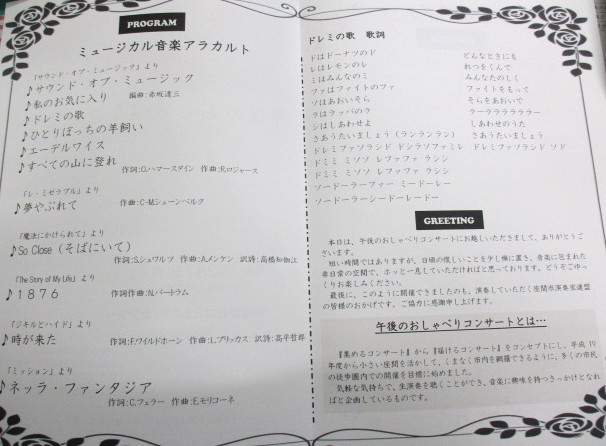 PROGRAM
ミュージカル音楽アラカルト
「サウンド・オブ・ミュージック」より
♪サウンド・オブ・ミュージック
♪私のお気に入り 編曲:赤坂達三
♪ドレミの歌
♪ひとりぼっちの羊飼い
♪エーデルワイス
♪すべての山に登れ
作詞:O.ハマースタイン 作曲:R.ロジャース
「レ・ミゼラブル」より
♪夢やぶれて 作曲:C-M.シェーンベルク
「魔法にかけられて」より
♪So Close(そばにいて)
作詞:S.シュワルツ 作曲:A.メンケン 訳詩:高橋知伽江
「The Story of My Life」より
♪1876 作詞作曲:N.バートラム
「ジキルとハイド」より
♪時が来た 作詞:F.ワイルドホーン 作曲:L.ブリッカス 訳詩:高平哲郎
「ミッション」より
♪ネッラ・ファンタジア
作詞:C.フェラー 作曲:E.モリコーネ
ドレミの歌 歌詞
ドはドーナツのド どんなときにも
レはレモンのレ れつをくんで
ミはみんなのミ みんなたのしく
ファはファイトのファ ファイトをもって
ソはあおいそら そらをあおいで
ラはラッパのラ ラーララララララー
シはしあわせよ しあわせのうた
さあうたいましょう(ランランラン) さあうたいましょう
ドレミファソラシド ドシラソファミレ ドレミファソラシド ソド
ドミミ ミソソ レファファ ラシシ
ドミミ ミソソ レファファ ラシシ
ソードーラーファー ミードーレー
ソードーラーシードーレードー
GREETING
本日は、午後のおしゃべりコンサートにお越しいただきまして、ありがとうございます。
短い時間ではありますが、日頃の慌しいことを少し横に置き、音楽に包まれた
非日常の空間で、ホッと一息していただければと思っております。どうぞごゆっ
くりお楽しみください。
最後に、このように開催できましたのも、演奏していただく座間市演奏家連盟
の皆様のおかげです。ご協力に感謝申し上げます。
午後のおしゃべりコンサートとは…
『集めるコンサート』から『届けるコンサート』をコンセプトにし、平成19
年度から小さい座間を活かして、くまなく市内を網羅できるように、多くの市民
の徒歩圏内での開催を目標に始めました。
気軽な気持ちで、生演奏を聴くことができ、音楽に興味を持つきっかけとなれ
ばと企画しているものです。